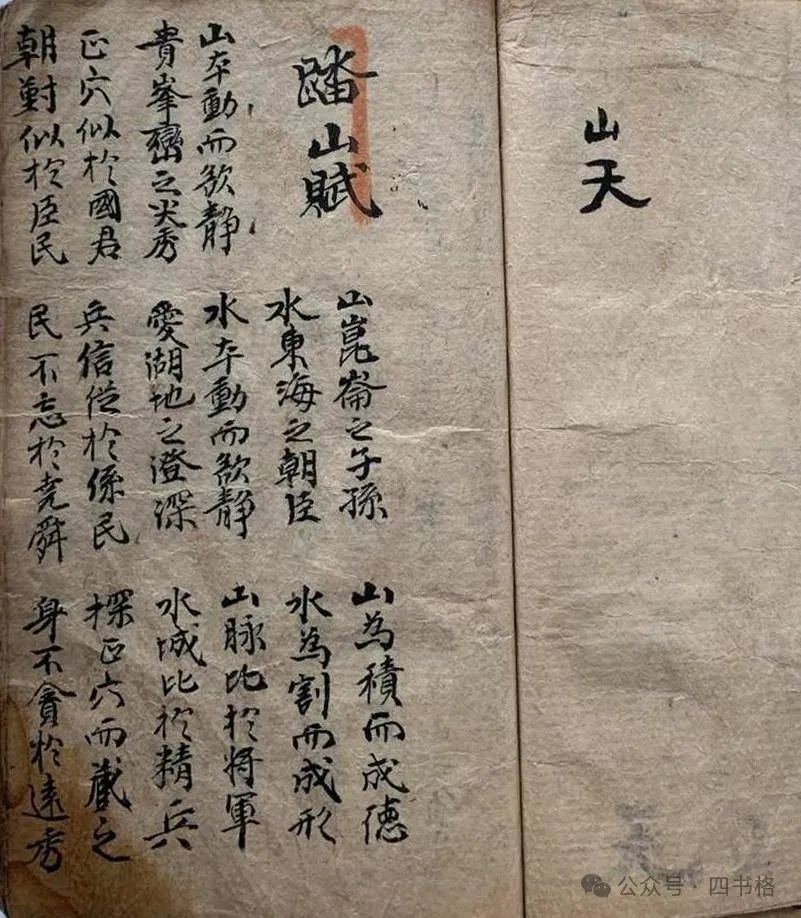 山天
踏山賦
山崑崙之子孫 山為積而成德
水東海之朝臣 水為割而成形
山夲動而欲静 水夲動而欲静 山脉比於将軍
貴峯巒之尖秀 愛湖地之澄深 水城比於精兵
正穴似於國君 兵信從於係民 探正穴而藏之
朝對似於臣民 民不忘於尭舜 身不貪於遠秀
公众号 · 四书格